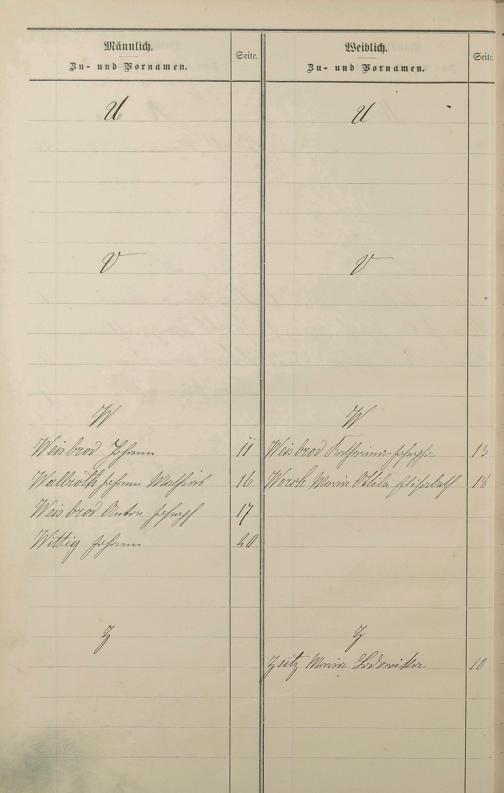 Männlich.
Zu- und Vornamen.
Seite.
Weiblich.
Zu- und Vornamen.
Seite.
U
U
V
V
W
W
Weisbrod Johann 11
Weisbrod Katharina Josepha 13
Wallroth Johann Mathias 16
Maria Ottilia Elisabeth 18
Weisbrod Anton Joseph 17
Wittig Johann 20
Z
Z
Zeitz Maria Ludovika 10